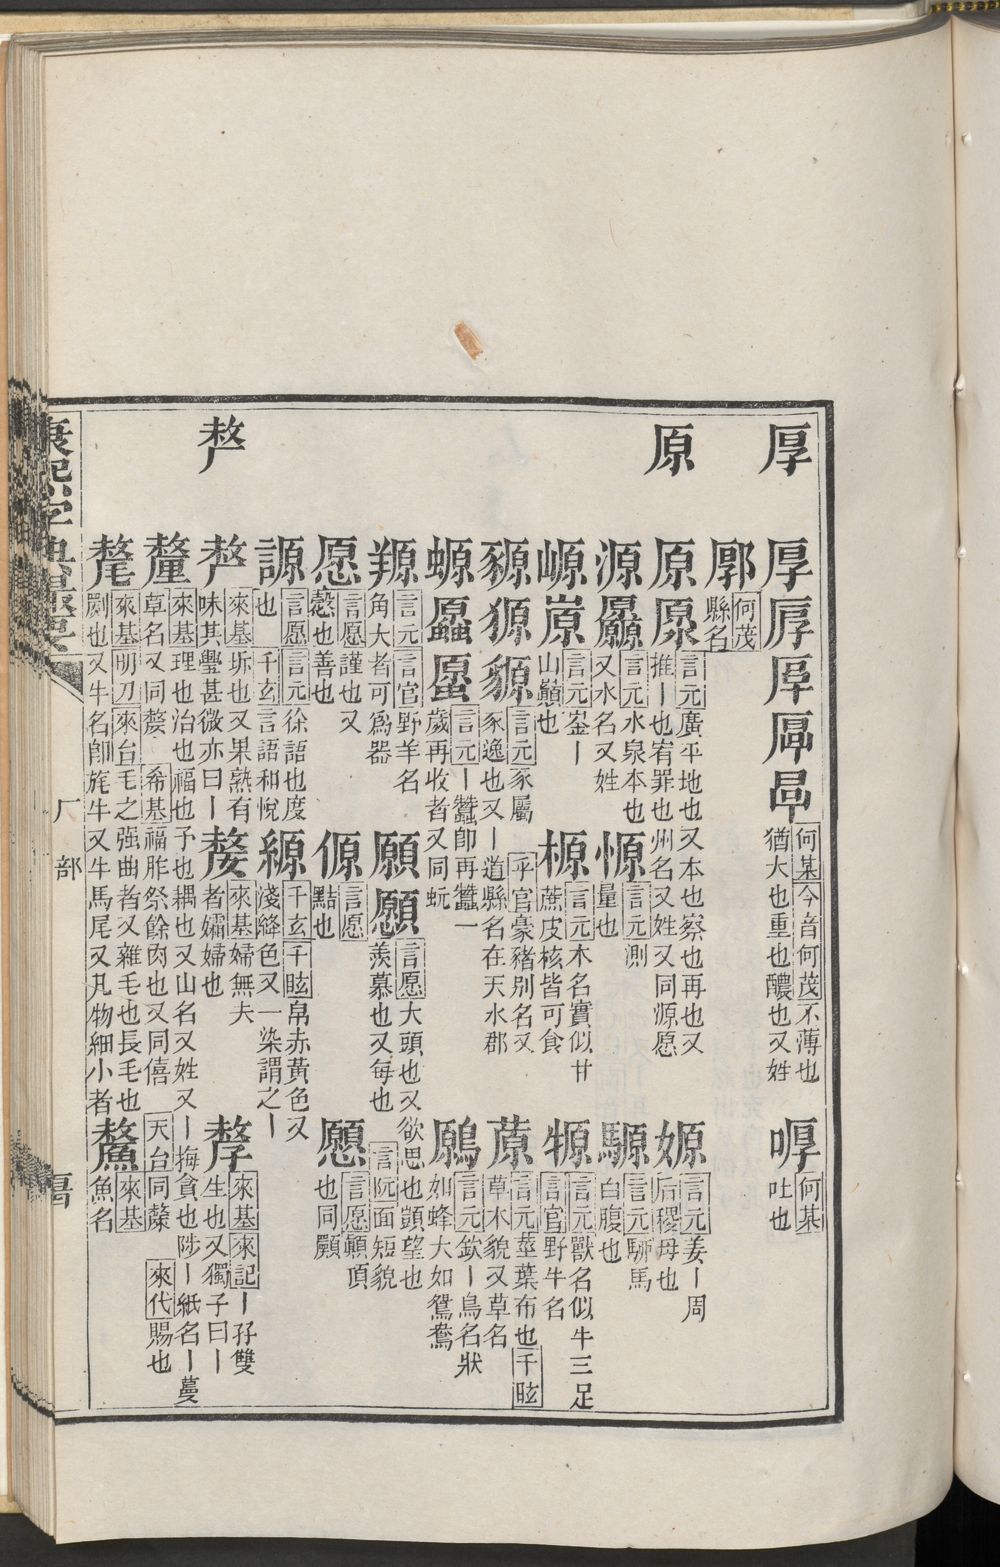 厚
厚 垕 何某 今音何茂 不薄也 猶大也重也醲也又姓
㖃 何某 吐也
郈 何茂 縣名
原
原 厡 言元 廣平地也又本也察也再也又推丨也宥罪也州名又姓又同源愿
嫄 言元 姜丨周后稷母也
源 厵 言元 水泉本也又水名又姓
愿 言元 測量也
騵 言元 駵馬白腹也
嵻 言元 崟丨山巔也
榞 言元 木名實似甘蔗皮核皆可食
犣 言元 獸名似牛三足 言官 野牛名
豲 獂 貆 言元 豕屬 乎官 豪豬別名又豕逸也又丨道縣名在天水郡
蒝 言元 莖葉布也 千眩 草木貌又草名
螈 言元 丨蠶卽再蠶一歲再收者又同蚖
鶢 言元 欽丨鳥名狀如蜂大如鴛鴦
羱 言元 言官 野羊名角大者可爲器
願 言愿 大頭也又欲思也顗望也羨慕也又每也 言阮 面短貌
愿 言愿 謹也又愨也善也
傆 言愿 黠也
言愿 顚頂也同顥
謜 言愿 言元 徐語也度也 千玄 言語和悅
縓 千玄 千眩 帛赤黃色又淺絳色又一染謂之丨
𠩺
𠩺 來基 坼也又果熟有味其釁甚微亦曰丨
嫠 來基 婦無夫者孀婦也
孷 來基 來記 丨孖雙生也又獨子曰丨
釐 來基 理也治也福也予也耦也又山名又姓又丨挴貪也陟丨紙名丨蔓草名又同嫠 希基 福胙祭餘肉也又同僖 天台 同斄 來代 賜也
氂 來基 明刀 來台 毛之强曲者又雜毛也長毛也劚也又牛名卽旄牛又牛馬尾又凡物細小者
𩺔 來基 魚名
康熙字典撮要
厂部